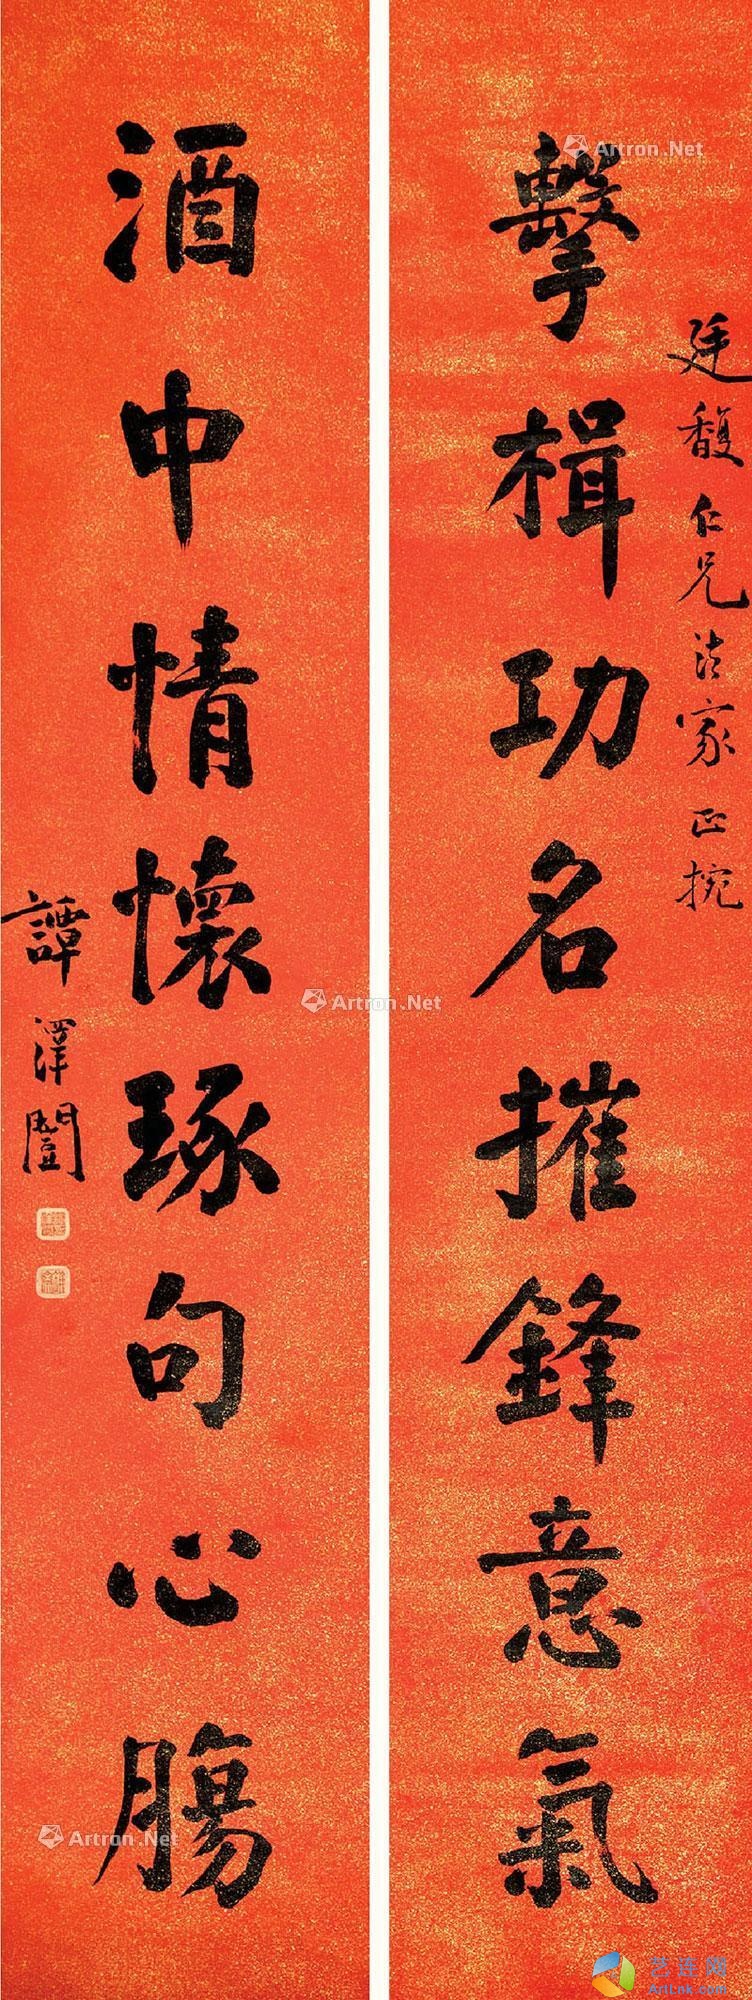 擊楫功名摧鋒意氣
廷馥仁兄法家正捥
酒中情懷琢句心腸
譚澤闓
Artron.Net
Artron.Net
Artron.Net
艺连网
ArtLnk.com